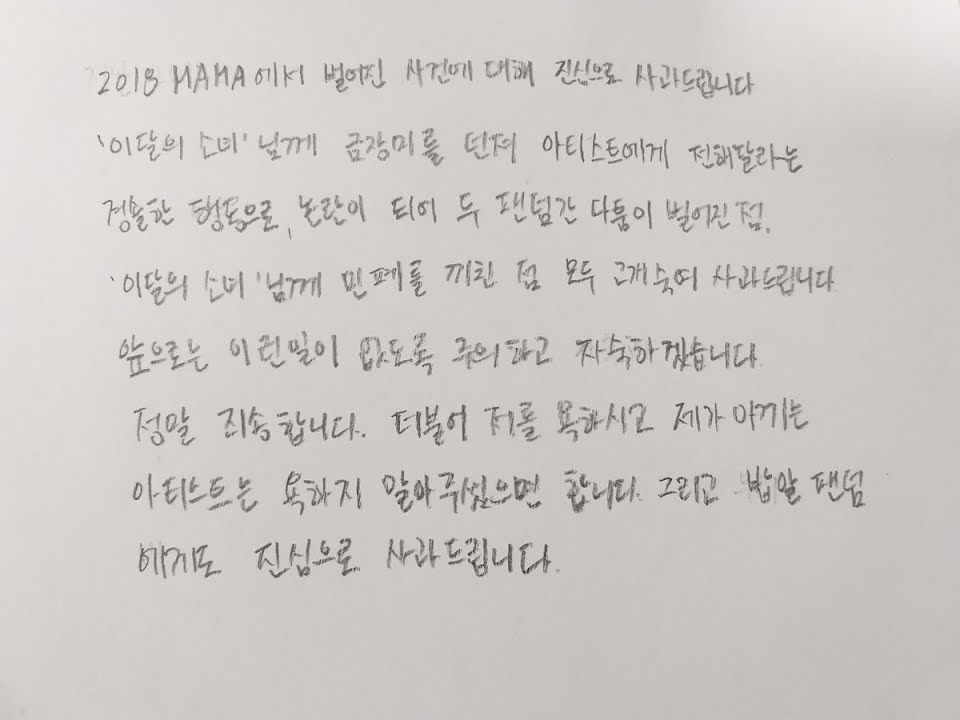 2018 MAMA에서 벌어진 사건에 대해 진심으로 사과드립니다
'이달의 소녀'님께 금장미를 던져 아티스트에게 전해달라는
경솔한 행동으로, 논란이 되어 두 팬덤간 다툼이 벌어진 점,
'이달의 소녀'님께 민폐를 끼친 점 모두 고개숙여 사과드립니다
앞으로는 이런일이 없도록 주의하고 자숙하겠습니다.
정말 죄송합니다. 더불어 저를 욕하시고 제가 아끼는
아티스트는 욕하지 말아주셨으면 합니다. 그리고 밥알 팬덤
에게도 진심으로 사과드립니다.